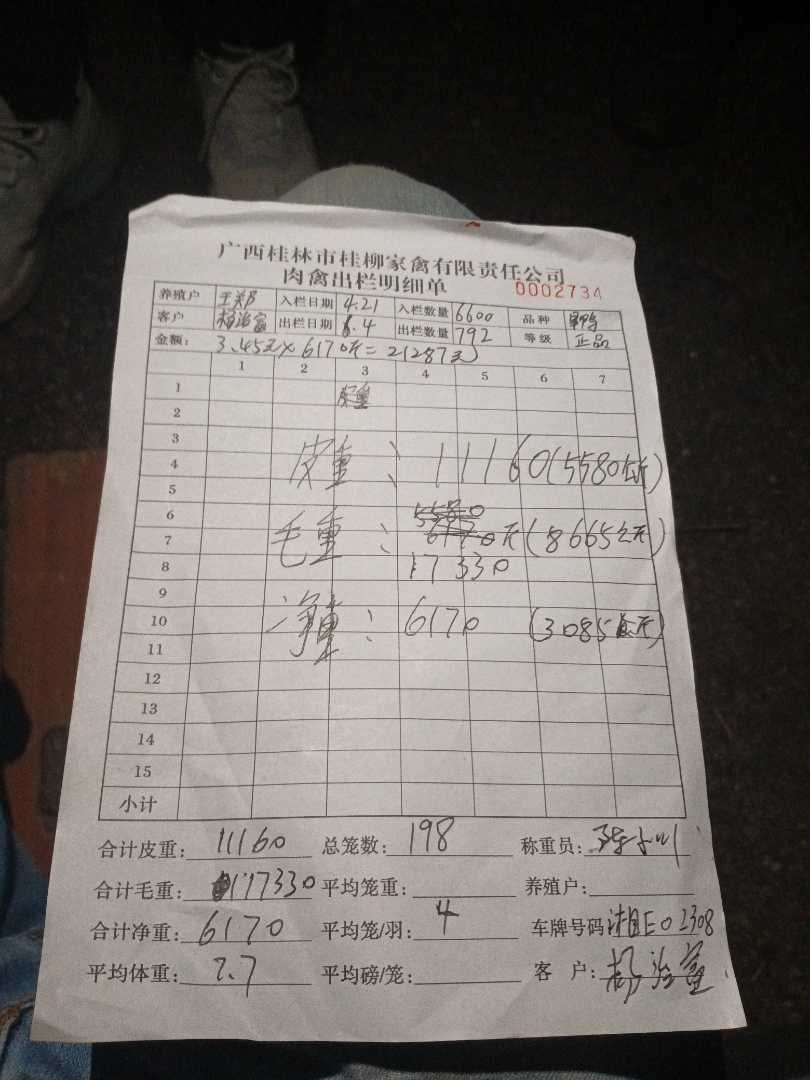 广西桂林市桂柳家禽有限责任公司
肉禽出栏明细单 0002734
养殖户 入栏日期 4.21 入栏数量 6600 品种
客户 杨治富 出栏日期 6.4 出栏数量 792 等级 正品
金额: 3.45元×6170斤=21287元
1 2 3 4 5 6 7
1 皮重
2
3
4 皮重: 11160(5580公斤)
5
6
7 毛重: 斤(8665公斤)
8 17330
9
10 净重: 6170 (3085公斤)
11
12
13
14
15
小计
合计皮重: 11160 总笼数: 198 称重员:
合计毛重: 17330 平均笼重: 养殖户:
合计净重: 6170 平均笼/羽: 4 车牌号码 湘E02308
平均体重: 7.7 平均磅/笼: 客户: 杨治富